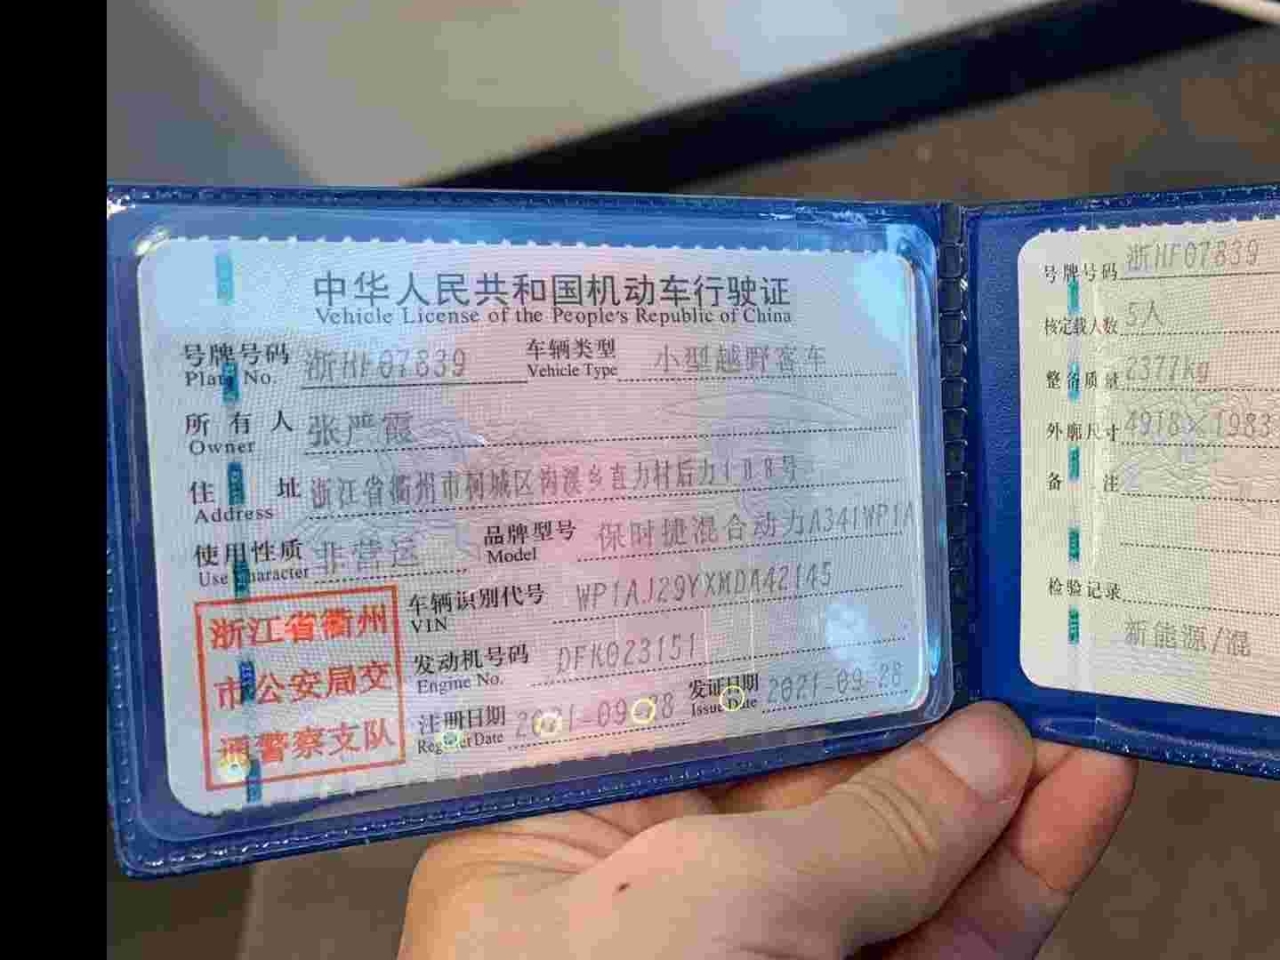 中华人民共和国机动车行驶证
Vehicle License of the People's Republic of China
号牌号码 浙HF07839 车辆类型 小型越野客车
Plate No. Vehicle Type
所有人 张严霞
Owner
住址 浙江省衢州市柯城区沟溪乡直力村后力108号
Address
使用性质 非营运 品牌型号 保时捷混合动力A341WP1A
Use Character Model
车辆识别代号 WP1AJ29YXMDA42145
VIN
发动机号码 DFK023151
Engine No.
注册日期 2021-09-28 发证日期 2021-09-28
Register Date Issue Date
浙江省衢州
市公安局交
通警察支队
号牌号码 浙HF07839
核定载人数 5人
整备质量 2377kg
外廓尺寸 4918×1983
备注
检验记录
新能源/混